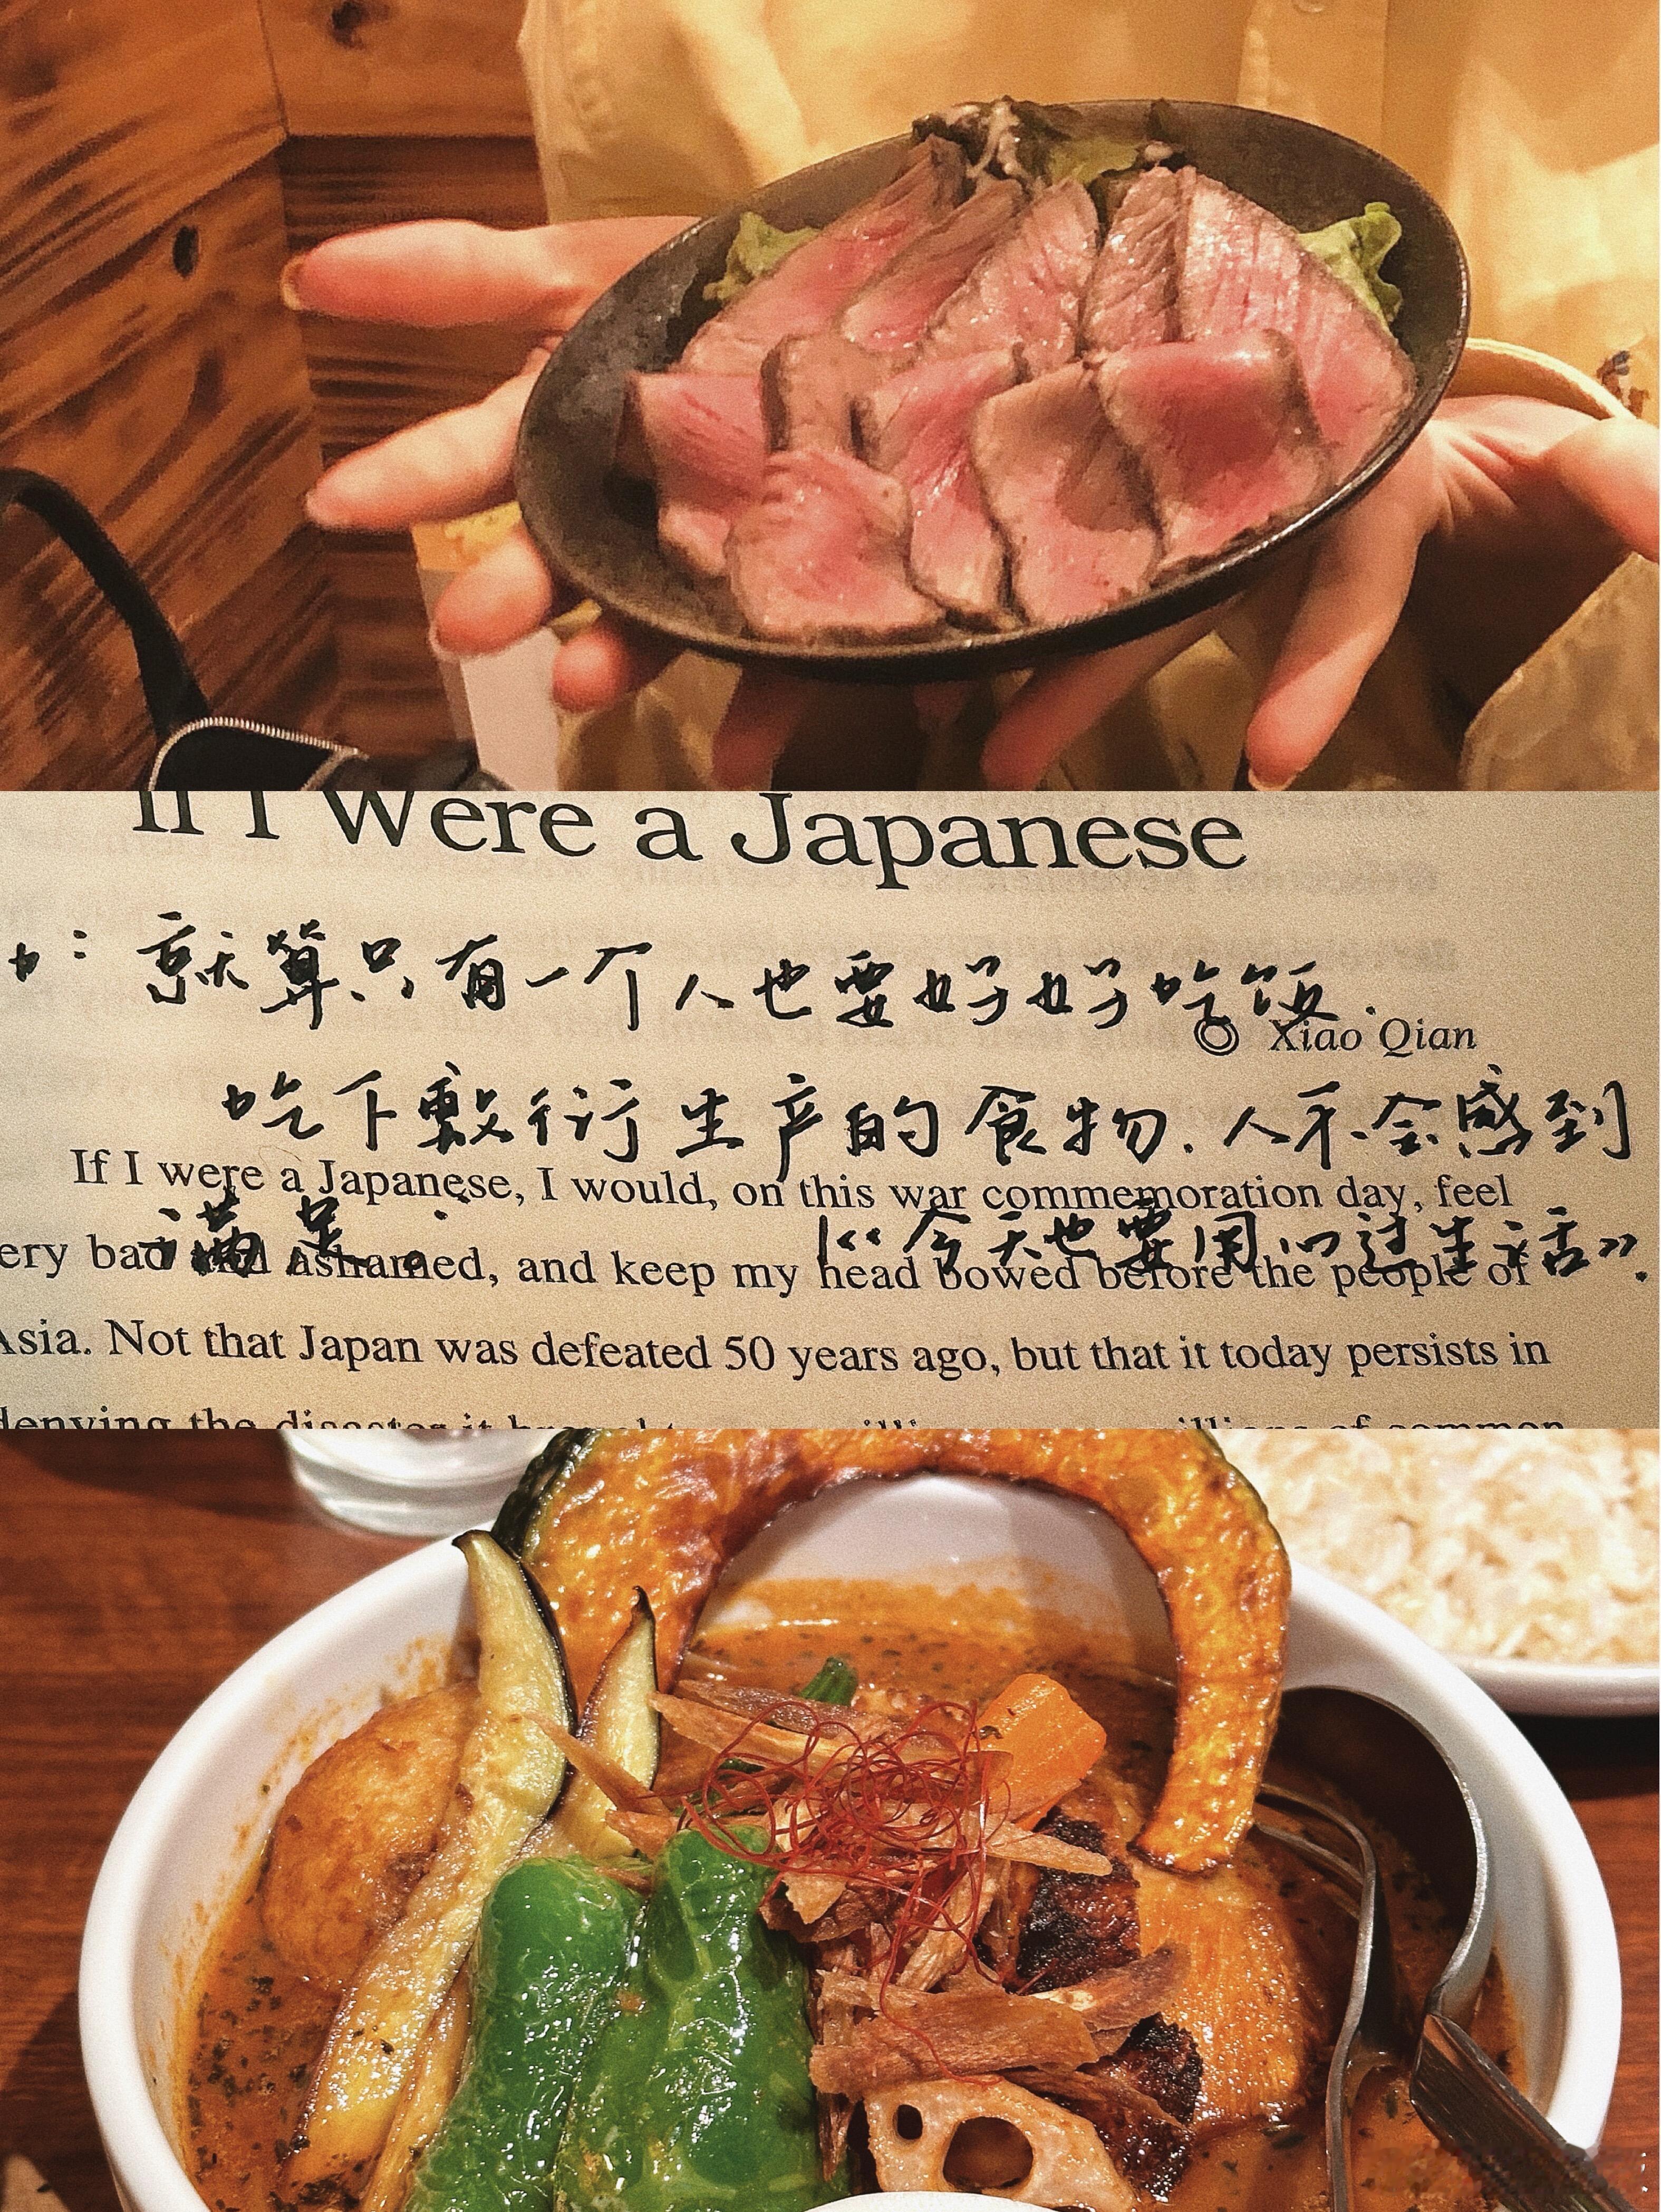 If I Were a Japanese
就算只有一个人也要好好吃饭.
Xiao Qian
吃下敷衍生产的食物.人不会感到
If I were a Japanese, I would, on this war commemoration day, feel
满足.
《今天也要用心过生活》.
ery bad and ashamed, and keep my head bowed before the people of
Asia. Not that Japan was defeated 50 years ago, but that it today persists in
denying the disaster it brought to many millions of common